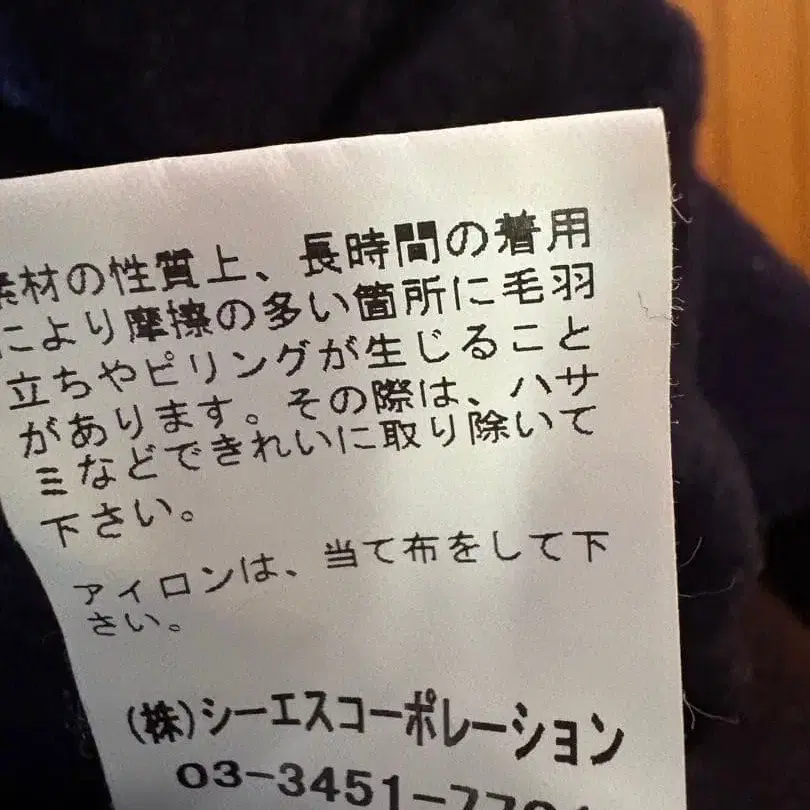 素材の性質上、長時間の着用
により摩擦の多い箇所に毛羽
立ちやピリングが生じること
があります。その際は、ハサ
ミなどできれいに取り除いて
下さい。
アイロンは、当て布をして下
さい。
(株)シーエスコーポレーション
03-3451-